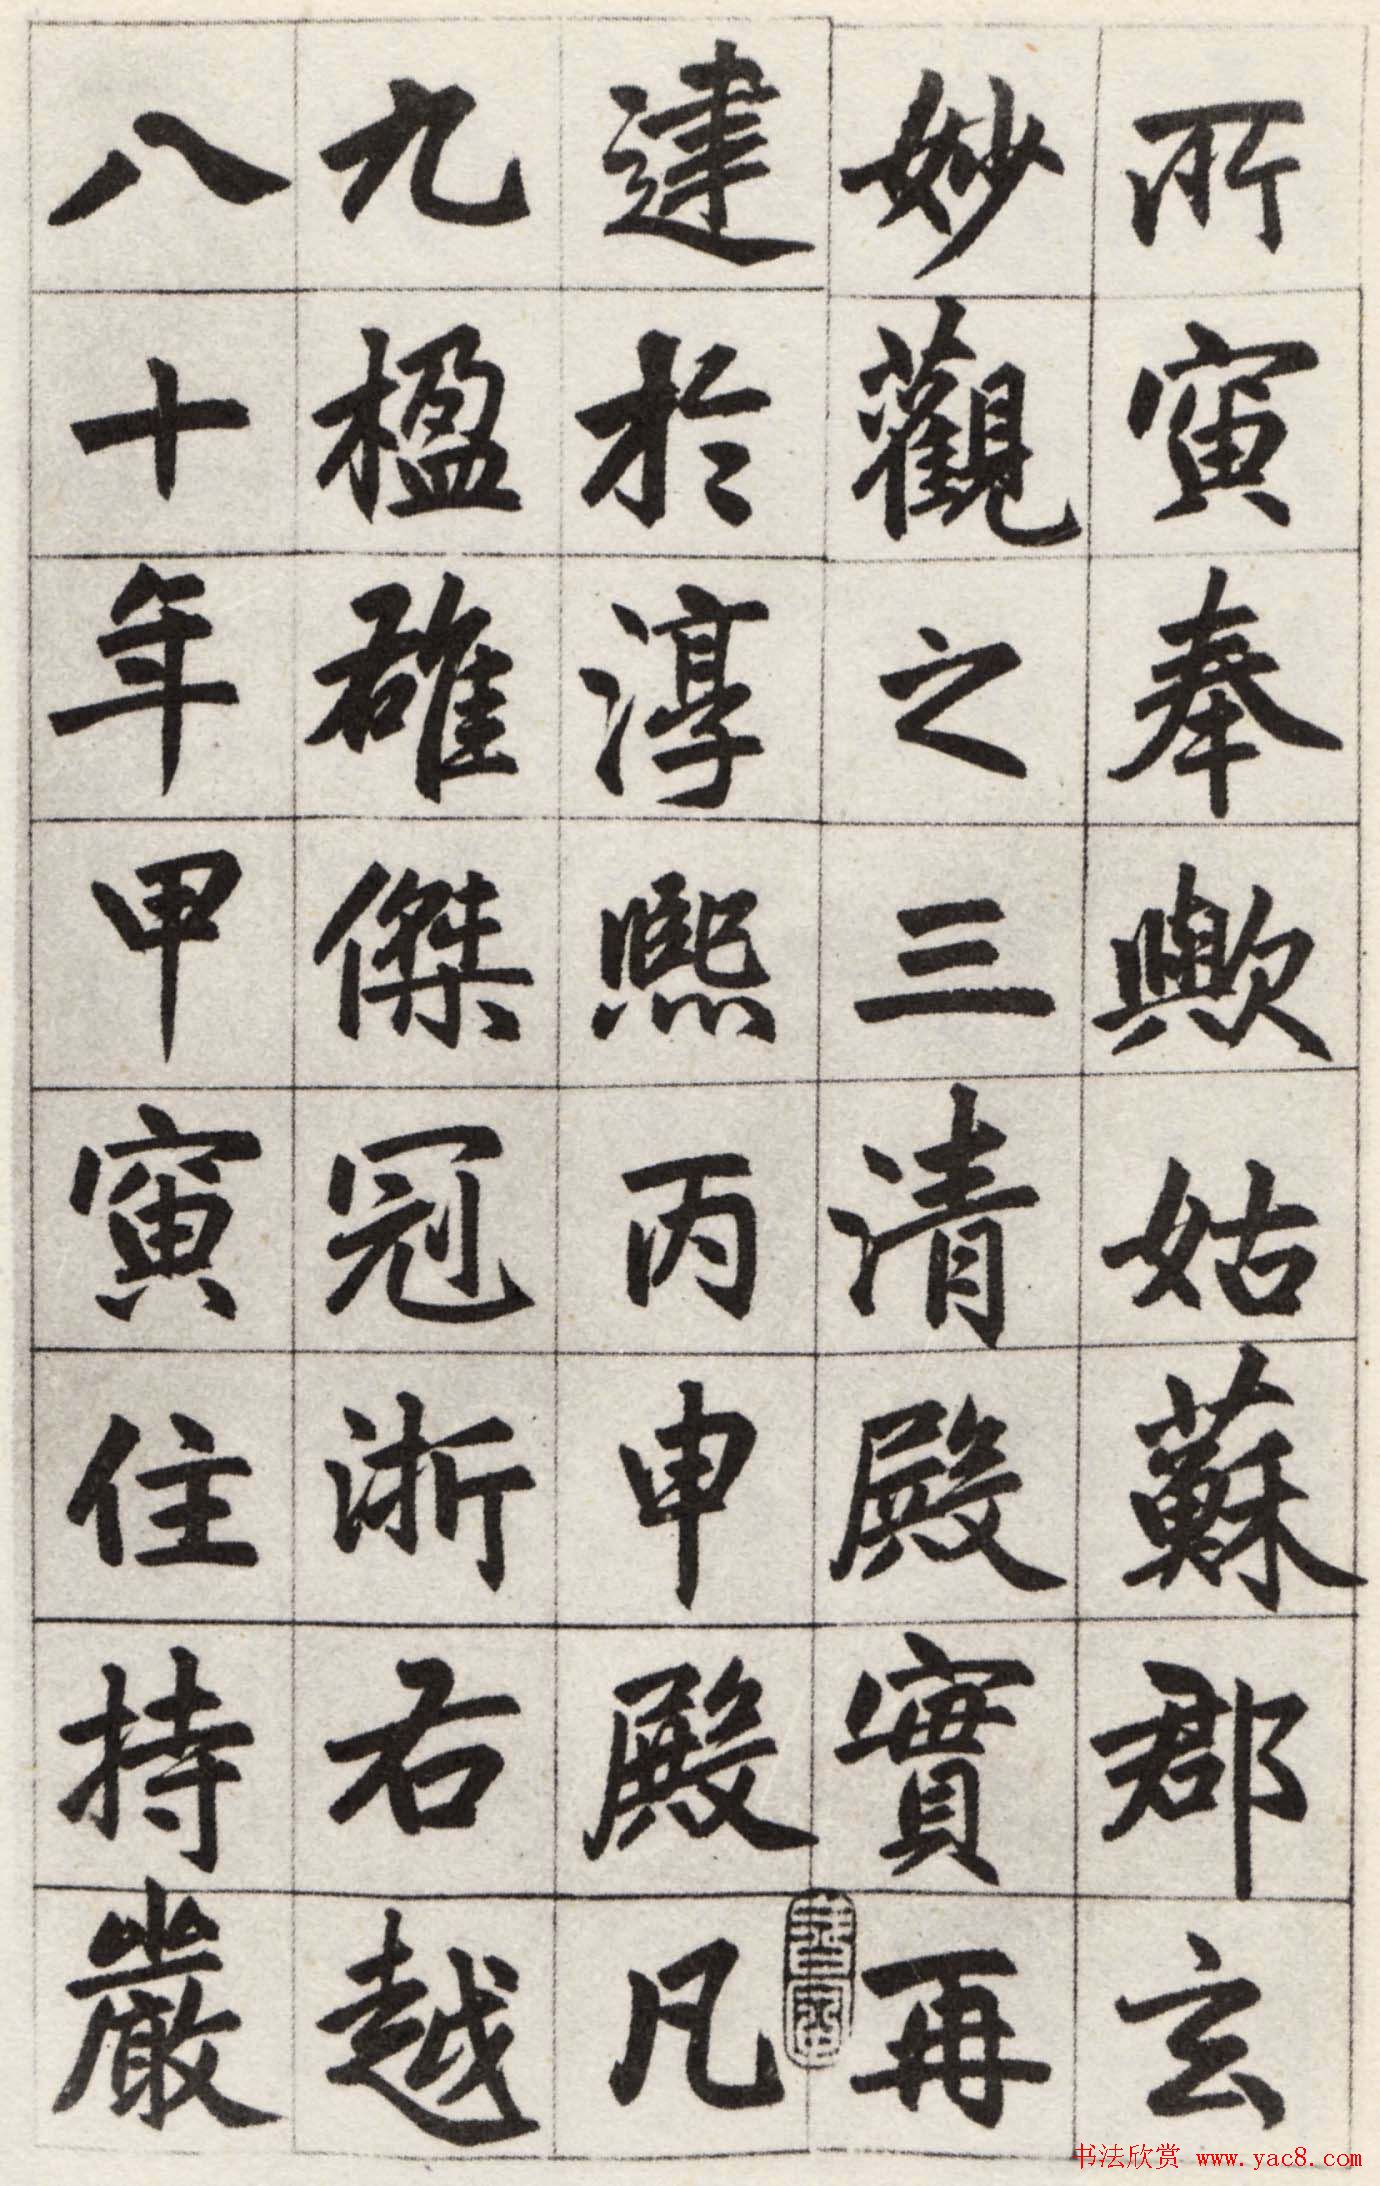 所寅奉歟姑蘇郡玄
妙觀之三清殿實再
建於淳熙丙申殿凡
九楹碓傑冠浙右越
八十年甲寅住持嚴
书法欣赏 www.yac8.com